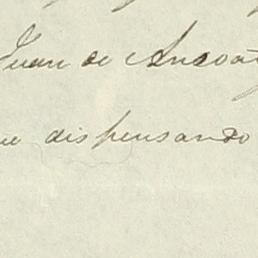 Juan de Ansoat
ue dispensando